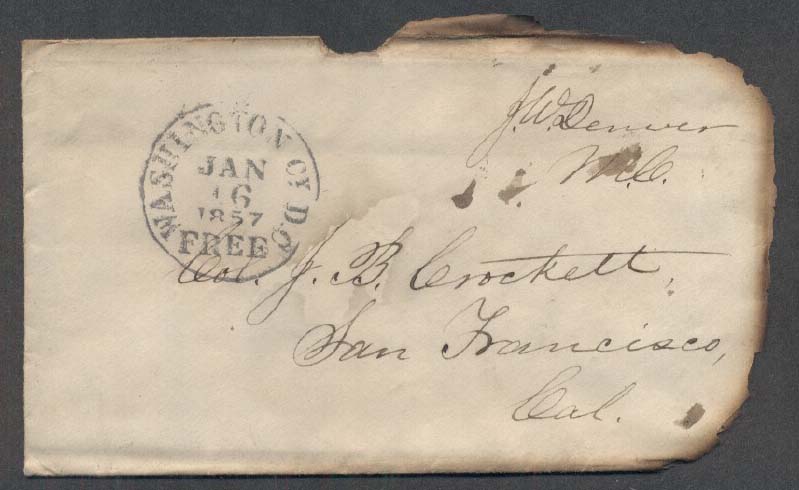 WASHINGTON CY D.C.
JAN
16
1857
FREE
J.W. Denver
M.C.
Col. J. B. Crockett,
San Francisco,
Cal.